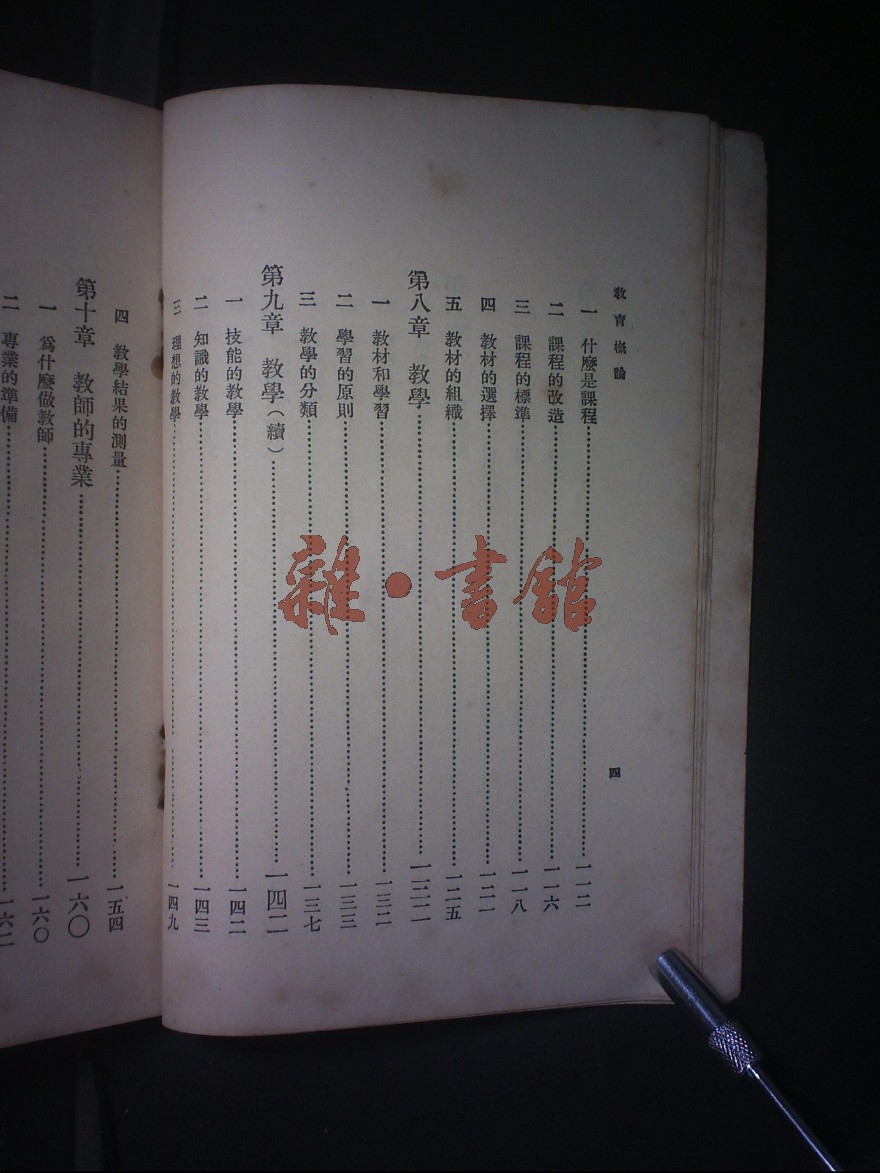 教育概論
一 什麼是課程……一一二
二 課程的改造……一一六
三 課程的標準……一一八
四 教材的選擇……一二一
五 教材的組織……一二五
第八章 教學……一三二
一 教材和學習……一三二
二 學習的原則……一三三
三 教學的分類……一三七
第九章 教學(續)……一四二
一 技能的教學……一四二
二 知識的教學……一四三
三 理想的教學……一四九
四
四 教學結果的測量……一五四
第十章 教師的專業……一六〇
一 爲什麼做教師……一六〇
二 專業的準備……一六二
雜·書館